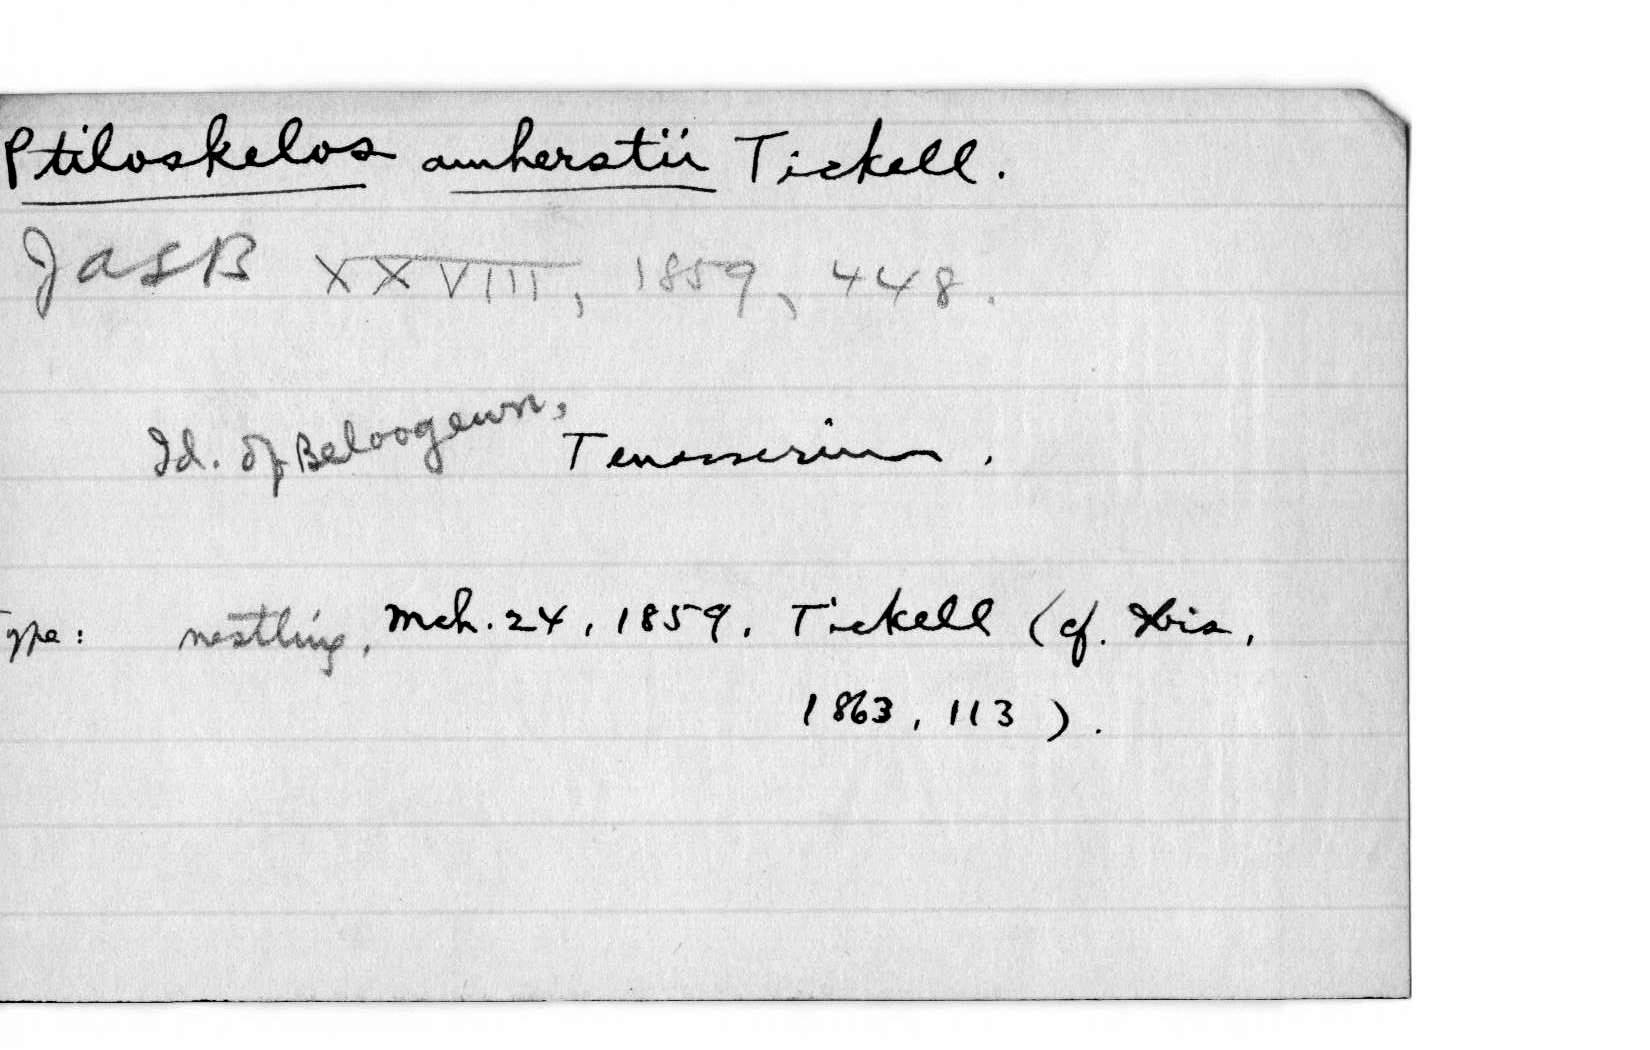 Ptiloskelos amherstii Tickell.
JASB XXVIII, 1859, 448.
Id. of Beloogewn, Tenasserim.
Type: nestling, Mch. 24, 1859. Tickell (cf. Ibis,
1863, 113).